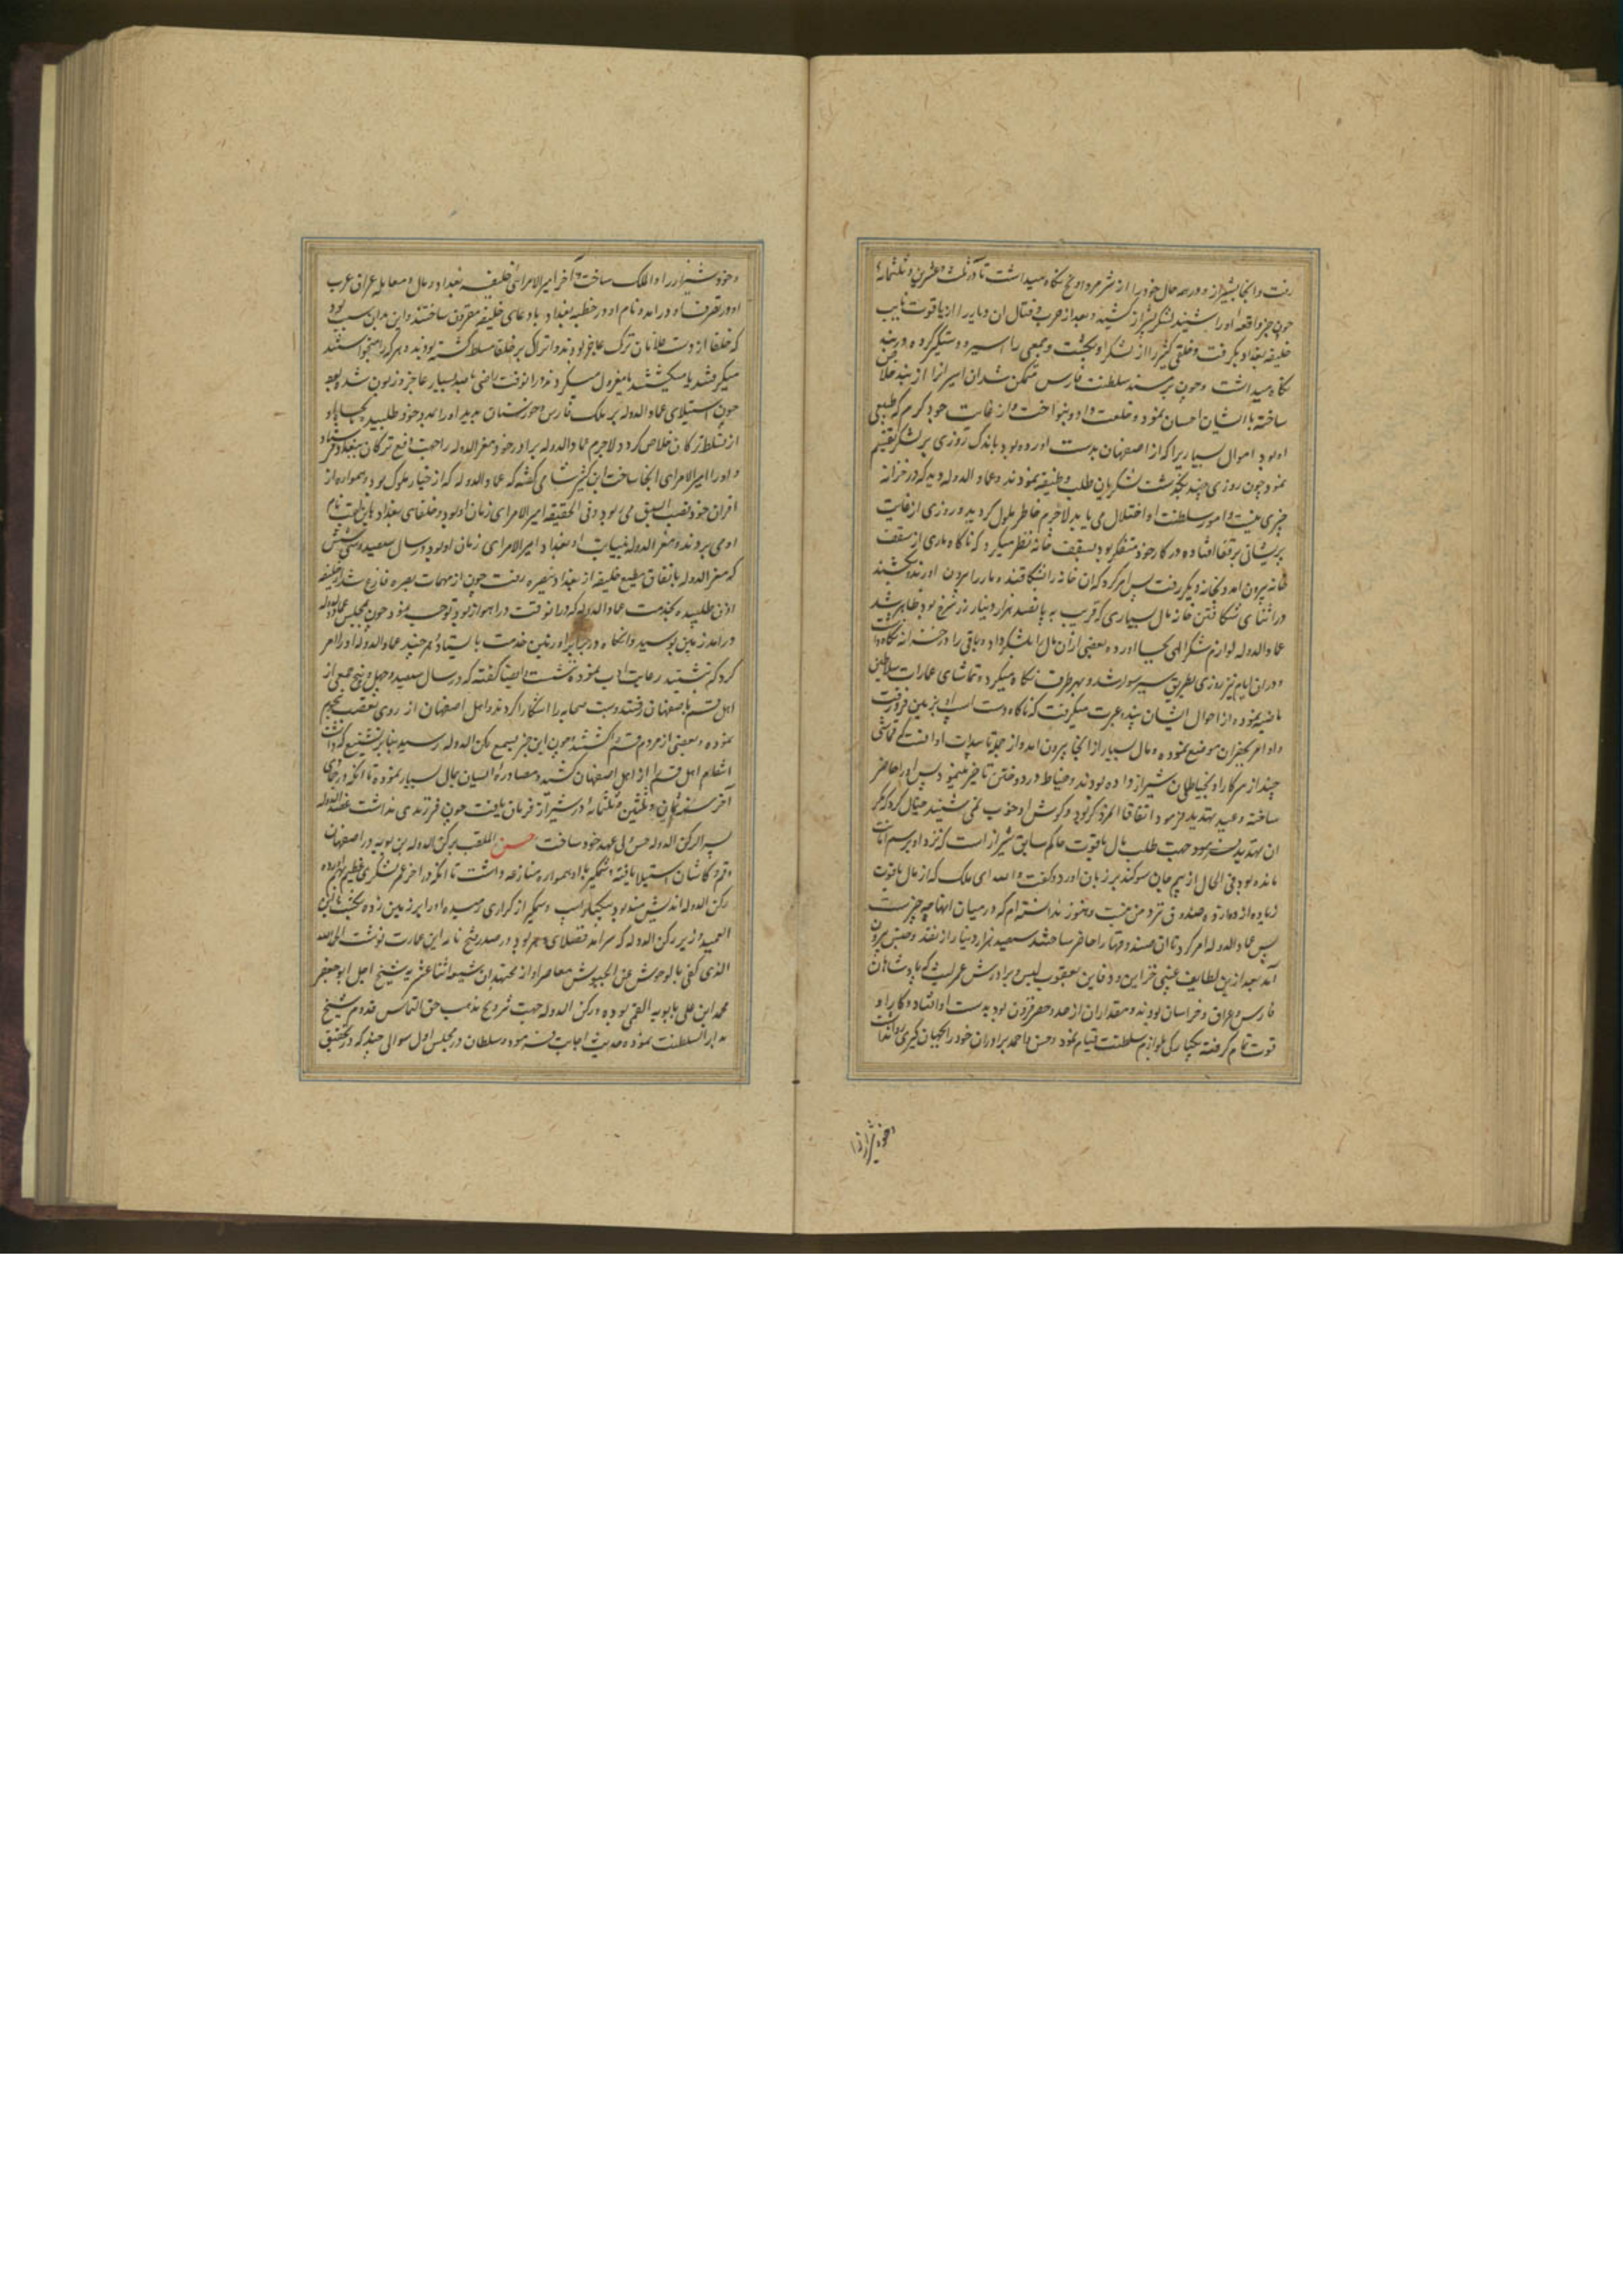 رفت و از انجا بشیراز و در همه حال خود را از شر مرداویج نگاه میداشت تا در ثلث و عشرین و ثلثمائه
چون خبر واقعه او را شنید لشکر بشیراز کشید و بعد از حرب و قتال ان دیار را از یاقوت نایب
خلیفه بغداد بگرفت و خلقی کثیر را از لشکر او بکشت و جمعی را اسیر و دستگیر کرده در بند
نگاه میداشت و چون بر مسند سلطنت فارس متمکن شد ان اسیرانرا از بند خلاص
ساخته با ایشان احسان نمود و خلعت داد و بنواخت و از غایت جود و کرم که طبیعی
او بود اموال بسیار یرا که از اصفهان بدست اورده بود باندک روزی بر لشکر تقسیم
نمود چون روزی چند بگذشت لشکریان طلب وظیفه نمودند و عماد الدوله دید که در خزانه
چیزی نیست و امور سلطنت او اختلال می یابد لاجرم خاطر ملول کردید و روزی از غایت
پریشانی بر قفا افتاده در کار خود متفکر بود بسقف خانه نظر میکرد که ناکاه ماری از سقف
خانه بیرون امد و بخانه دیکر رفت پس امر کرد که ان خانه را بشکافند و مار را بیرون اورند و بکشند
در اثنای شکافتن خانه مال بسیاری که قریب به پانصد هزار دینار زر سرخ بود ظاهر شد
عماد الدوله لوازم شکر الهی بجا اورده بعضی از ان مال را بلشکر داد و باقی را در خزانه نگاه داشت
و در ان ایام نیز روزی بطریق سیر سوار شد و بهر طرف نگاه میکرد و تماشای عمارات سلاطین
ماضیه نموده از احوال ایشان پند و عبرت میکرفت که ناکاه دست اسب او بزمین فرو رفت
و او امر بحفر ان موضع نموده و مال بسیار از انجا بیرون امد و از جمله تاییدات او انست که قماشی
چند از سرکار او بخیاطی شیراز داده بودند و خیاط در دوختن تاخیر مینمود پس او را حاضر
ساخته وعید و تهدید فرمود اتفاقا المرد کر بود و کوش او خوب نمی شنید خیال کرد که مکر
ان تهدید بسر بود جهت طلب مال یاقوت حاکم سابق شیراز است که نزد او برسم امانت
مانده بود فی الحال از بیم جان سوکند بر زبان اورد و کفت والله ای ملک که از مال یاقوت
زیاده از دوازده صندوق نزد من نیست و هنوز ندانسته ام که در میان انها چه چیز است
پس عماد الدوله امر کرد تا ان صندوقها را حاضر ساختند سیصد هزار دینار از نقد و جنس بیرون
آمد بعد از ین لطایف غیبی خزاین و دفاین یعقوب لیس و برادرش عمر لیث که پادشاهان
فارس و عراق و خراسان بودند و مقدار ان از حد و حصر فزون بود بدست او افتاد و کار او
قوت تمام گرفته یکبارکی بلوازم سلطنت قیام نمود و حسن و احمد برادران خود را بجهان گیری روانه
و خود شیراز را
و خود شیراز را دار الملک ساخت و آخر امیر الامرای خلیفه بغداد و مال و معامله عراق عرب
او در تصرف او درامد و نام او در خطبه بغداد با دعای خلیفه مقرون ساختند و این بدان سبب بود
که خلفا از دست غلامان ترک عاجز بودند و اتراک بر خلفا مسلط کشته بودند و هر که را میخواستند
میکرفتند یا میکشتند یا معزول میکردند و در انوقت راضی بالله بسیار عاجز و زبون شده بود
چون استیلای عماد الدوله بر ملک فارس و خوزستان بدید او را بمدد خود طلبید
از تسلط ترکان خلاص کردد لاجرم عماد الدوله برادر خود معز الدوله را جهت دفع ترکان ببغداد فرستاد
و او را امیر الامرای انجا ساخت ابن کثیر شامی گفته که عماد الدوله که از خیار ملوک بود و همواره از
اقران خود قصب السبق می ربود و فی الحقیقه امیر الامرای زمان او بود و خلفای بغداد باین لقب نام
او می بردند و معز الدوله بنیابت او ببغداد امیر الامرای زمان او بود و در سال سیصد و سی و شش
که معز الدوله باتفاق مطیع خلیفه از بغداد ببصره رفت چون از مهمات بصره فارغ شد از خلیفه
اذن طلبیده بخدمت عماد الدوله که در انوقت در اهواز بود توجه نمود چون بمجلس عماد الدوله
درامد زمین بوسید و انگاه در برابر او بر زمین خدمت بایستاد و هر چند عماد الدوله او را امر
کرد که بنشیند رعایت ادب نموده ننشست و ایضا کفته که در سال سیصد و چهل و پنج جمعی از
اهل قم باصفهان رفتند و سب صحابه را اشکارا کردند و اهل اصفهان از روی تعصب هجوم
نموده و بعضی از مردم قم را کشتند و چون این خبر بسمع رکن الدوله رسید بنا بر تشیعی که داشت
انتقام اهل قم را از اهل اصفهان کشید و مصادره ایشان بمال بسیار نموده تا انکه در جمادی
آخر سنه ثمان و ثلثین و ثلثمائه در شیراز فرمان یافت چون فرزندی نداشت عضد الدوله
پسر رکن الدوله حسن را ولی عهد خود ساخت حسن الملقب برکن الدوله بن بویه در اصفهان
و قم و کاشان استیلا یافته و وشمکیر با او همواره منازعه داشت تا انکه در اخر عمر لشکری عظیم بهم اورده
رکن الدوله اندیشمند بود یکبار اسب وشمکیر از کرازی رمیده او را بر زمین زده بکشت ابن
العمید وزیر رکن الدوله که سرامد فضلای دهر بود در صدر فتح نامه این عبارت نوشت الحمد لله
الذی کفی بالوحوش عن الجیوش معاصر او از مجتهدان شیعه اثنا عشریه شیخ اجل ابو جعفر
محمد ابن علی بابویه القمی بوده و رکن الدوله جهت ترویج مذهب حق التماس قدوم شیخ
بدار السلطنت نموده حدیث اجابت فرمود و سلطان در مجلس اول سوالی چند که در تحقیق